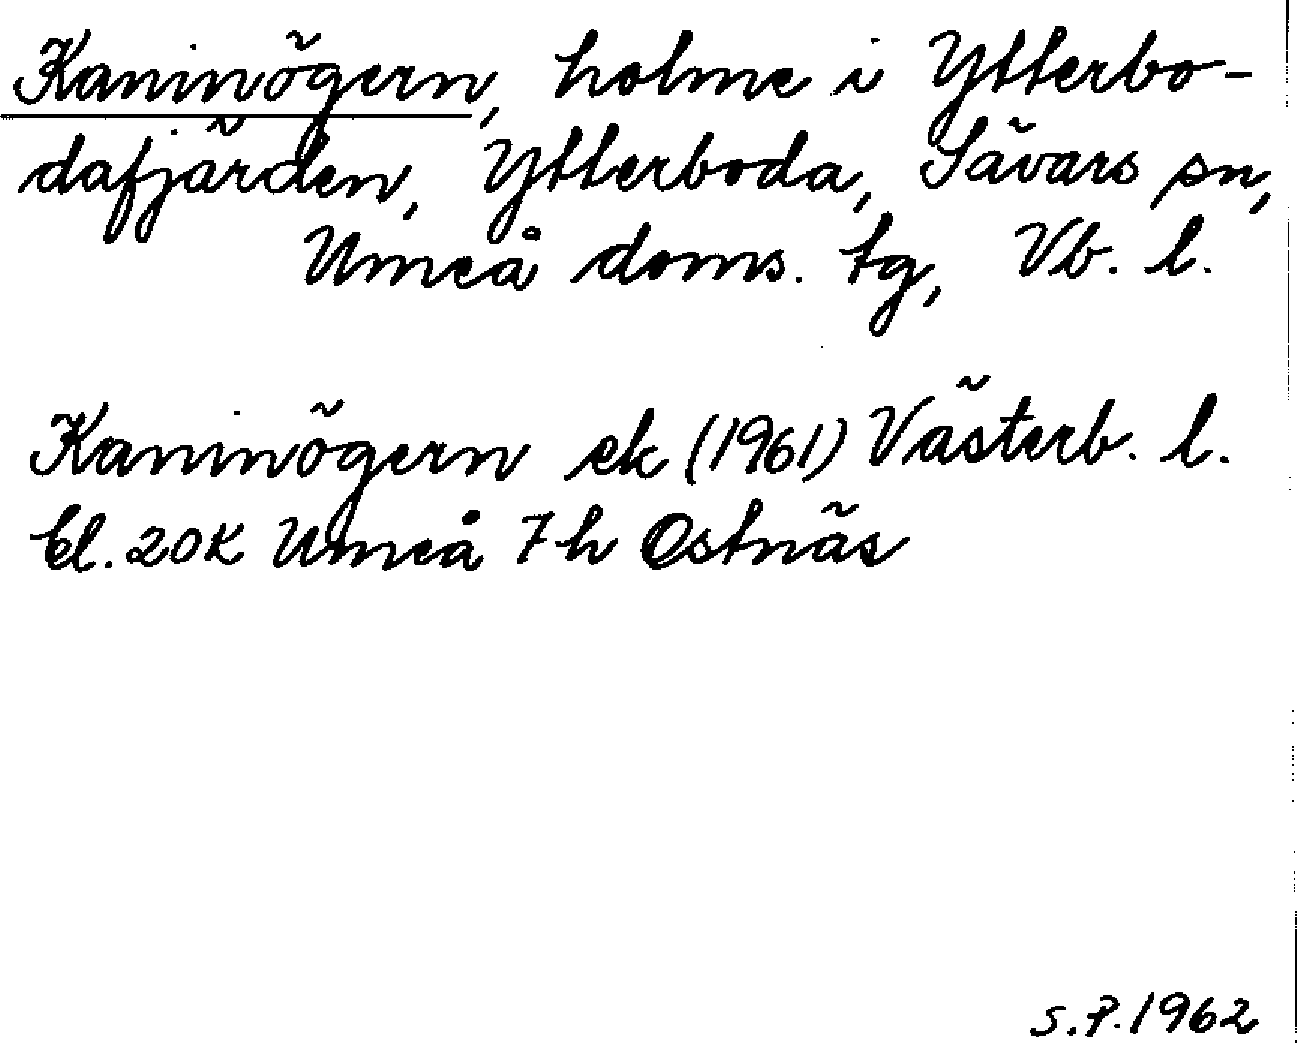 Kaninögern, holme i Ytterbo-
dafjärden, Ytterboda, Sävars sn,
Umeå doms. tg, Vb. l.
Kaninögern ek (1961) Västerb. l.
bl. 20K Umeå 7h Ostnäs
S.P. 1962